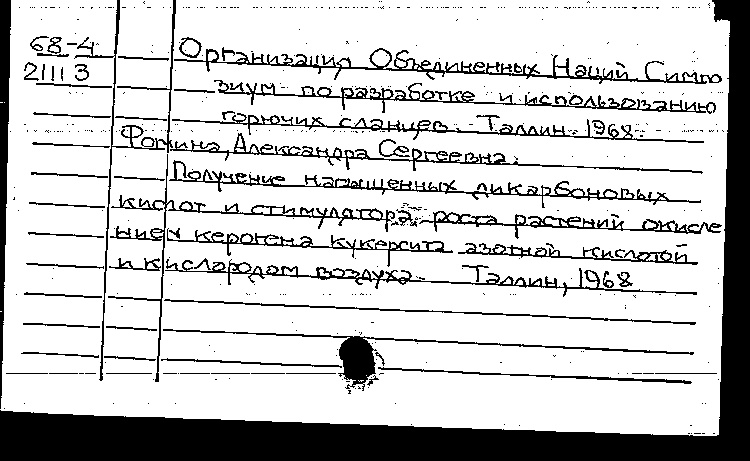 68-4
21113
Организация Объединенных Наций Симпо
зиум по разработке и использованию
горючих сланцев. Таллин. 1968.
Фомина, Александра Сергеевна.
Получение насыщенных дикарбоновых
кислот и стимулятора роста растений окисле
нием керогена кукерсита азотной кислотой
и кислородом воздуха. Таллин, 1968